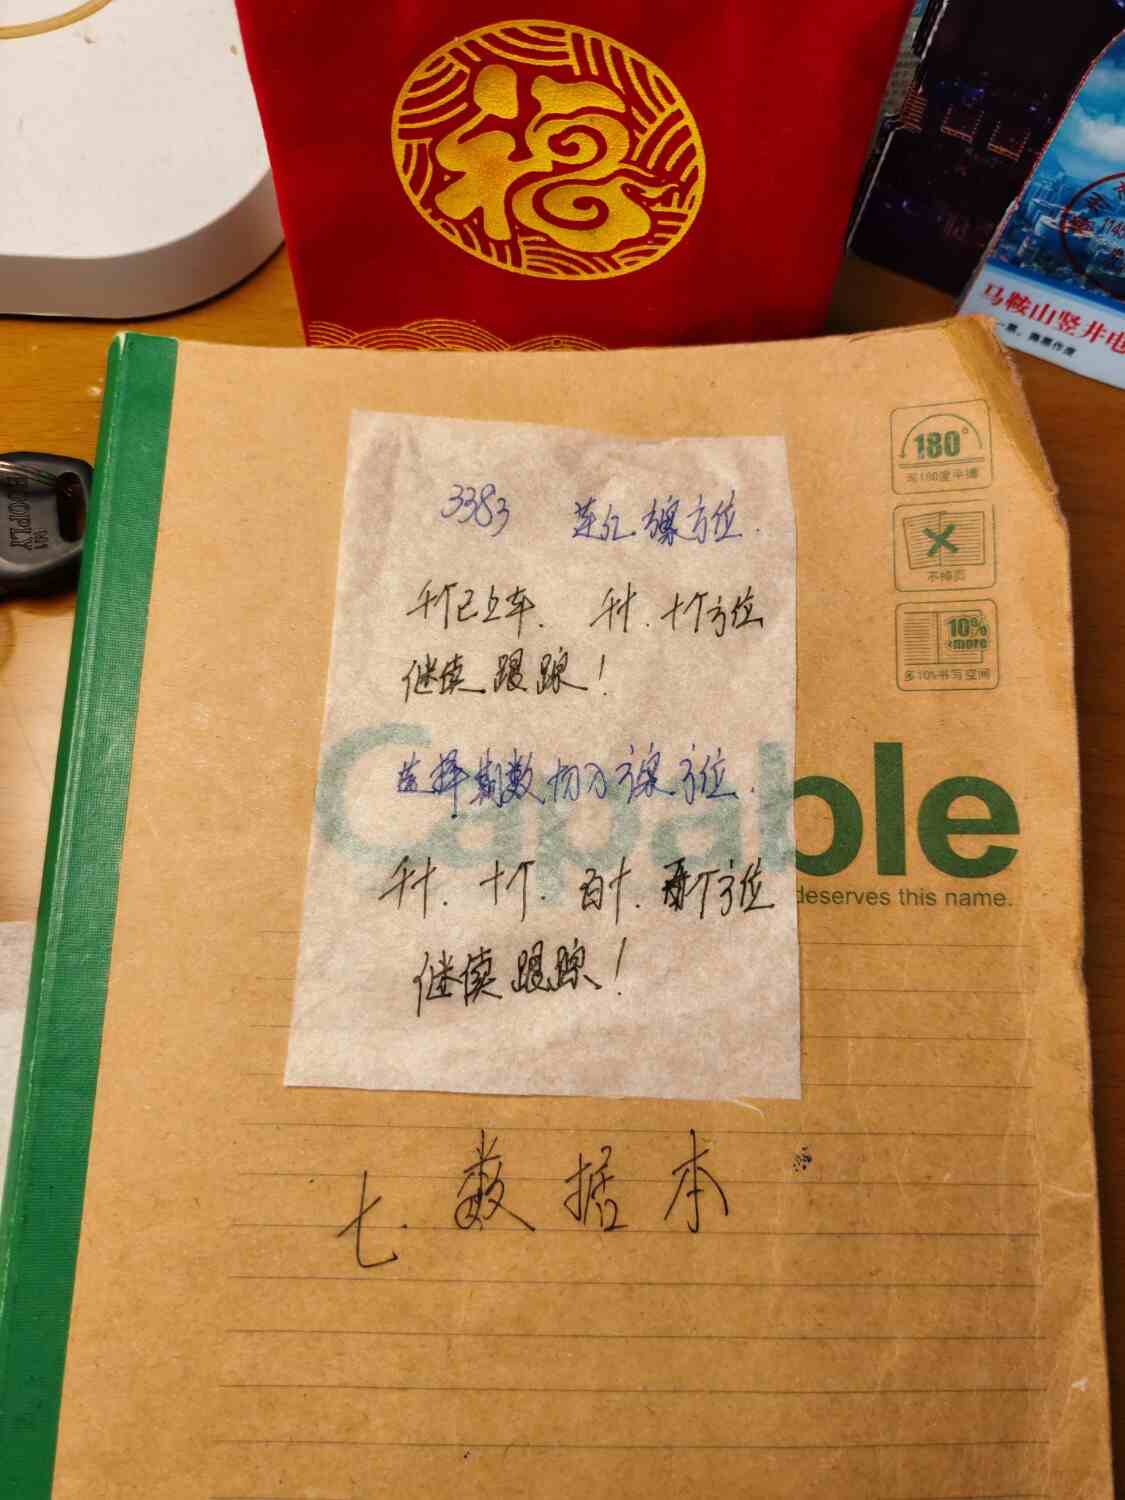 福
马鞍山竖井电
HOOPLY
180°
可180度平摊
不掉页
10%
more
多10%书写空间
3383 连红 方案方位.
千个已上车. 千十. 十个方位
继续跟踪!
选择期数切入方案方位.
千十. 十个. 百十. 百个方位
继续跟踪!
Capable
deserves this name.
七. 数据本